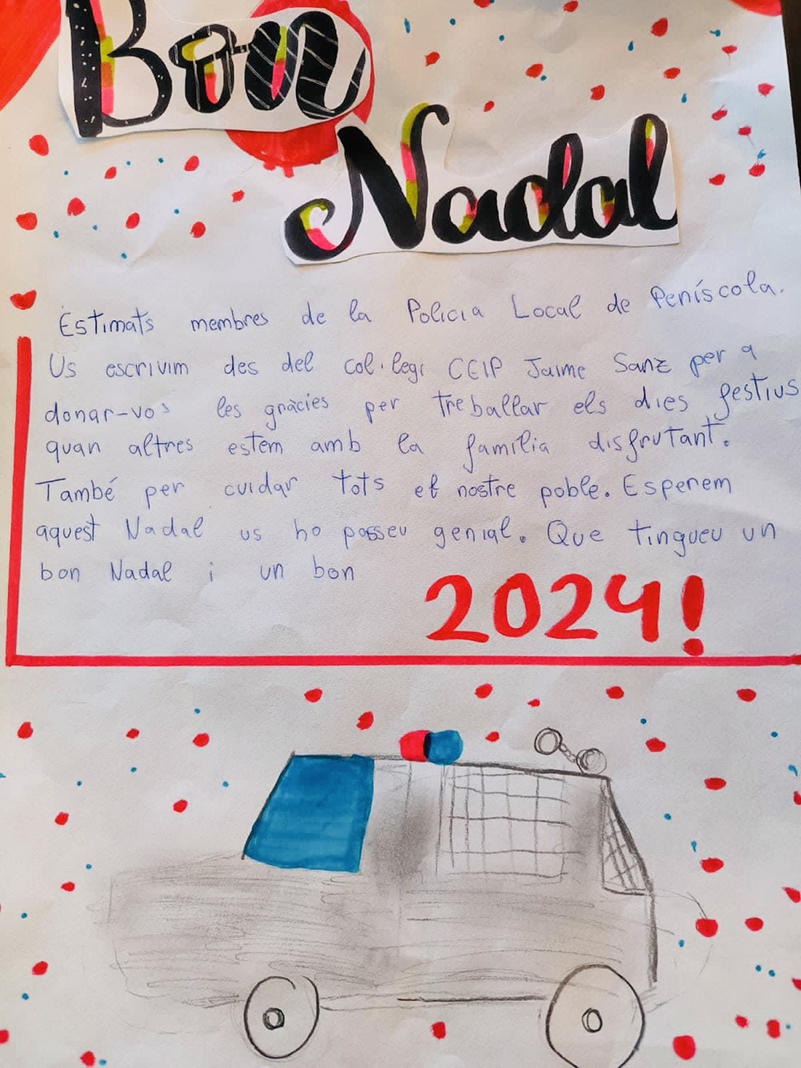 Bon
Nadal
Estimats membres de la Policia Local de Peníscola.
Us escrivim des del col·legi CEIP Jaime Sanz per a
donar-vos les gràcies per treballar els dies festius
quan altres estem amb la família disfrutant.
També per cuidar tots el nostre poble. Esperem
aquest Nadal us ho passeu genial. Que tingueu un
bon Nadal i un bon
2024!